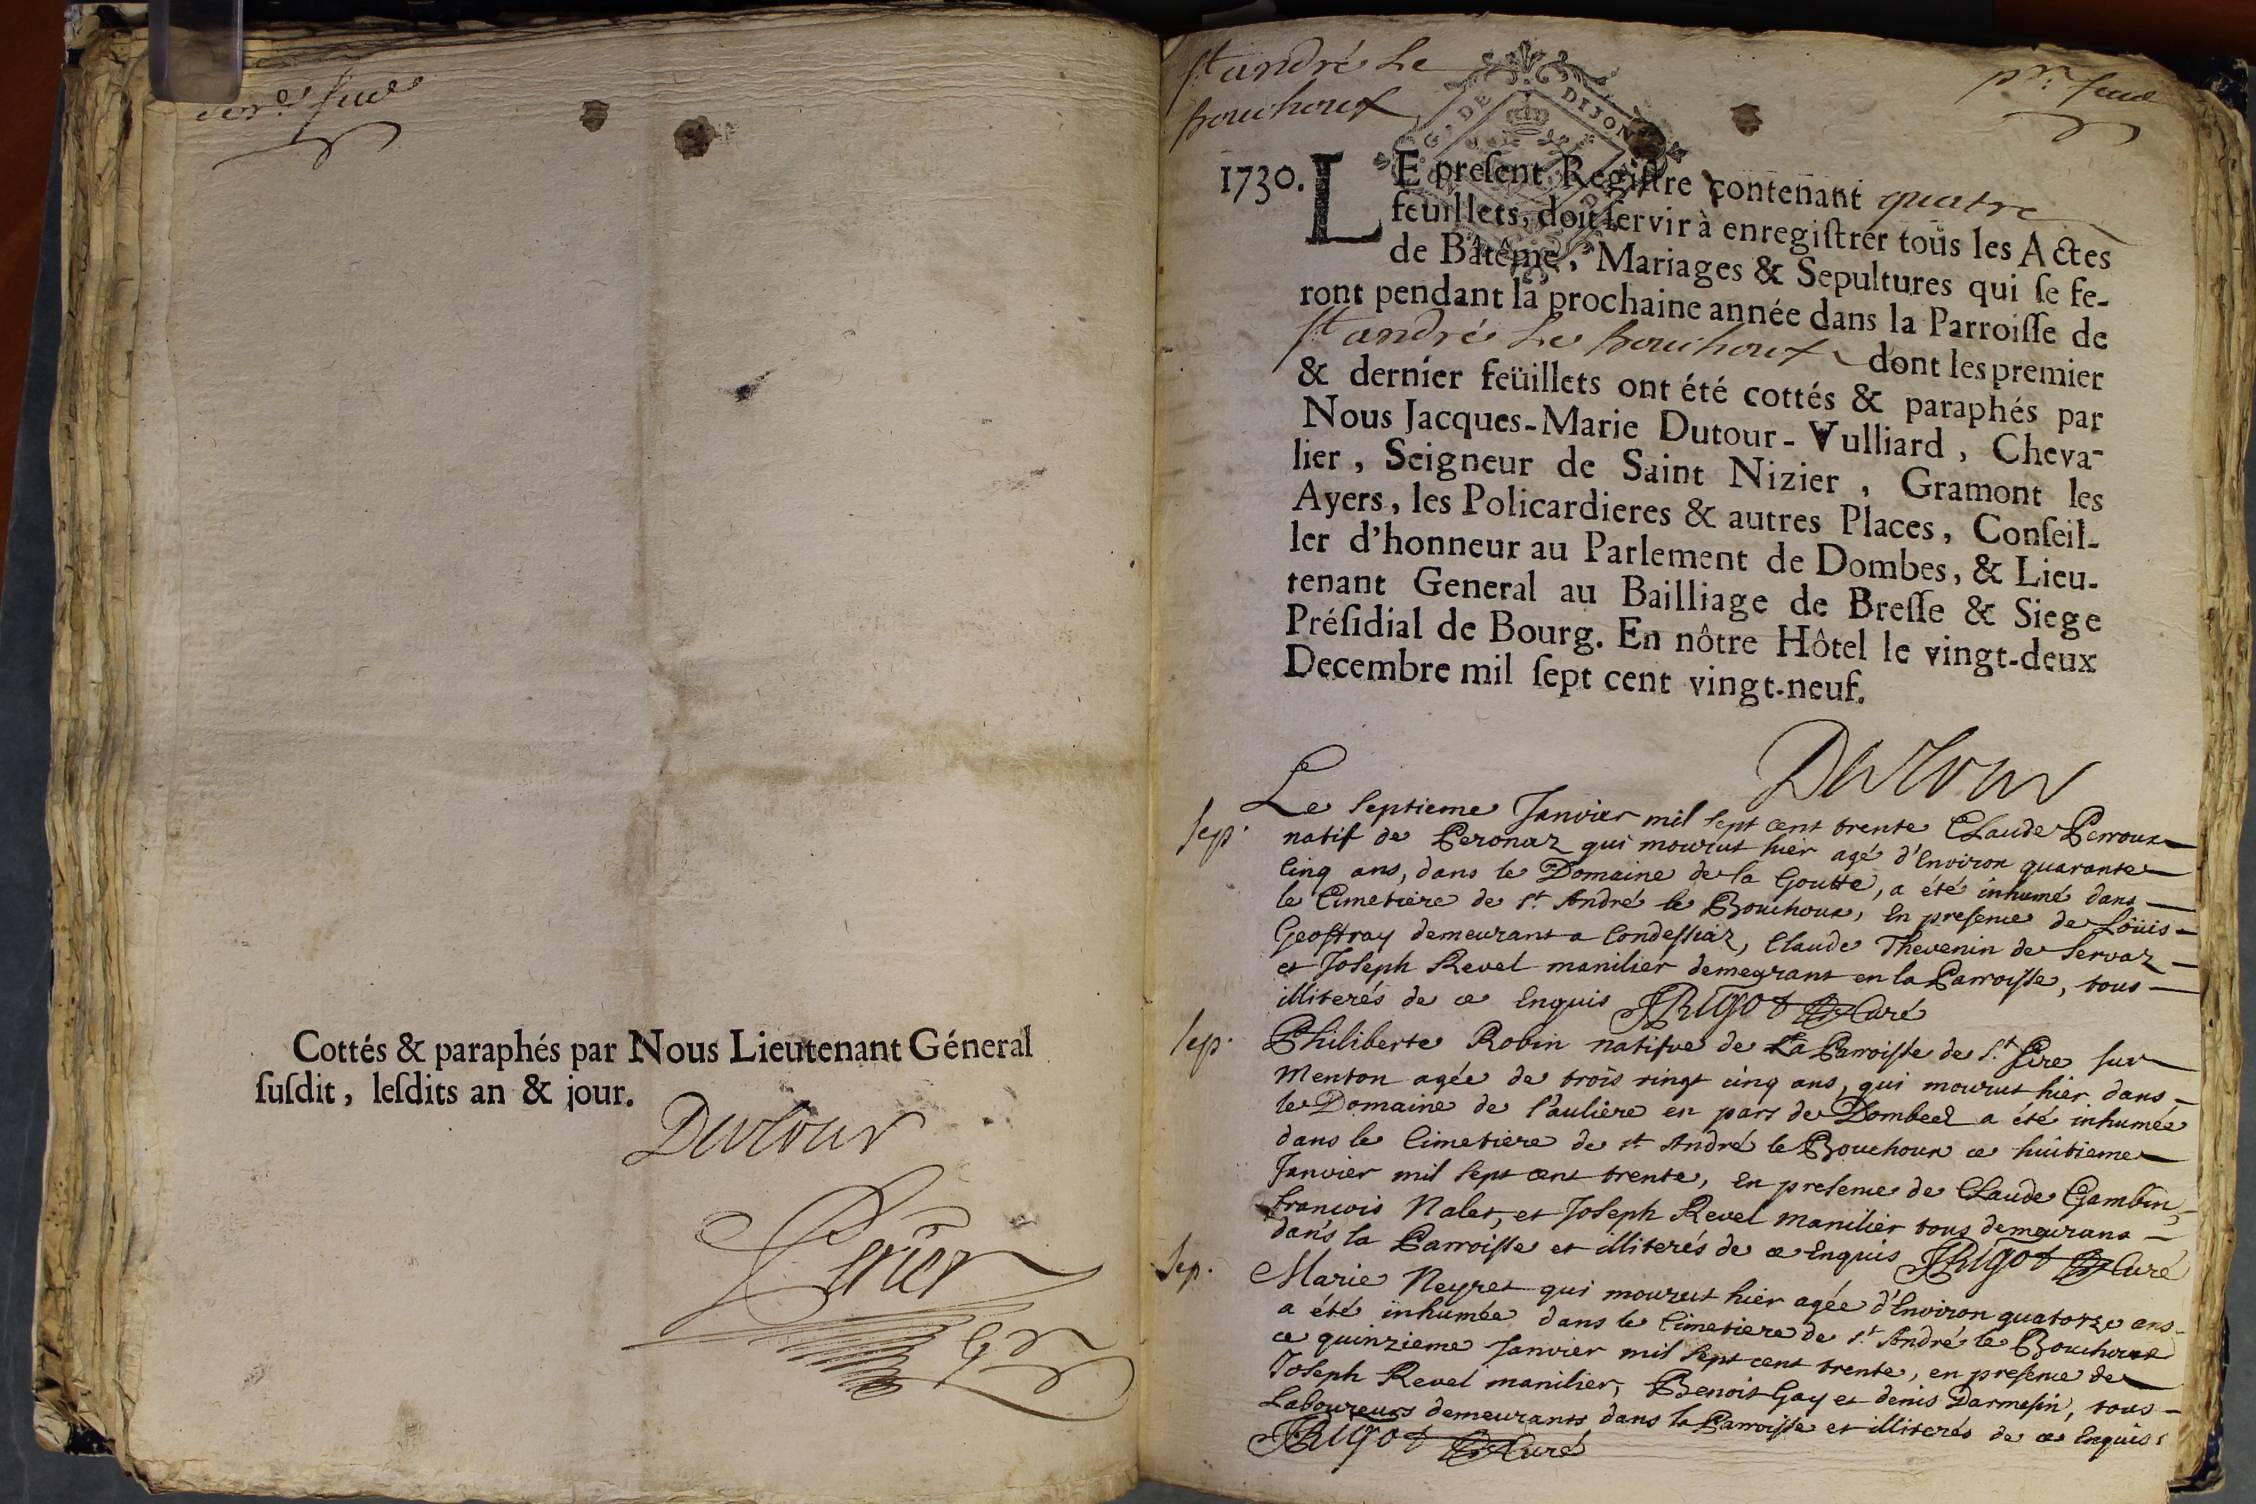 Cottés & paraphés par Nous Lieutenant Géneral
ſuſdit, leſdits an & jour.
Dutour
Perier
St andré Le
bouchoux
G. DE DIJON
1730.
LE preſent Regiſtre contenant quatre
feuillets, doit ſervir à enregiſtrer tous les Actes
de Batême, Mariages & Sepultures qui ſe fe-
ront pendant la prochaine année dans la Parroiſſe de
St andré Le bouchoux dont les premier
& dernier feüillets ont été cottés & paraphés par
Nous Jacques-Marie Dutour-Vulliard, Cheva-
lier, Seigneur de Saint Nizier, Gramont les
Ayers, les Policardieres & autres Places, Conſeil-
ler d'honneur au Parlement de Dombes, & Lieu-
tenant General au Bailliage de Breſſe & Siege
Préſidial de Bourg. En nôtre Hôtel le vingt-deux
Decembre mil ſept cent vingt-neuf.
Dutour
Sep.
Le Septieme Janvier mil Sept cent trente Claude Perroux
natif de Peronaz qui mourut hier agé d'Environ quarante
Cinq ans, dans le Domaine de la Goutte, a été inhumé dans
le Cimetiere de St André le Bouchoux, En preſence de Loüis
Geoffray demeurant a Condeſſiaz, Claude Thevenin de Servaz
et Joſeph Revel manilier demeurant en la Parroiſſe, tous
illiterés de ce Enquis JRigot Curé
Sep.
Philiberte Robin natifve de La Parroiſſe de St Sire ſur
Menton agée de trois vingt cinq ans, qui mourut hier dans
le Domaine de Sauliere en pars de Dombes a été inhumée
dans le Cimetiere de st André le Bouchoux ce huitieme
Janvier mil Sept cent trente, En preſence de Claude Gambin,
francois Nalet, et Joſeph Revel manilier tous demeurans
dans la Parroiſſe et illiterés de ce Enquis JRigot Curé
Sep.
Marie Neyret qui mourut hier agée d'Environ quatorze ans
a été inhumée dans le Cimetiere de St André le Bouchoux
ce quinzieme Janvier mil Sept cent trente, en preſence de
Joſeph Revel manilier, Benoit Gay et denis Darmeſin, tous
Laboureurs demeurants dans la Parroiſſe et illiterés de ce Enquis
JRigot Curé